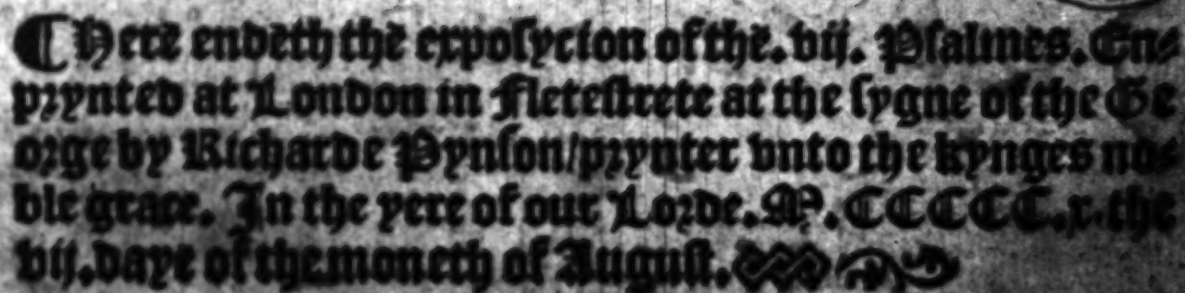 ¶ Here endeth the expoſycion of the .vij. Pſalmes. En⸗
prynted at London in Fleteſtrete at the ſygne of the Ge
orge by Richarde Pynſon/prynter vnto the kynges no⸗
ble grace. In the yere of our Lorde. M. CCCCC.x. the
vij. daye of the moneth of Auguſt.